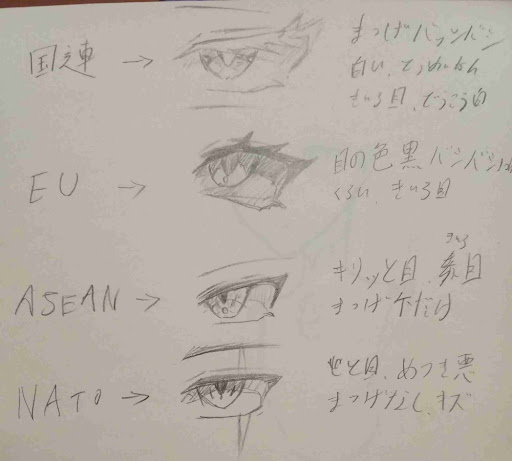 国連 →
まつげバッシバシ
白い、とうめいなかん
きいろ目、どうこう白
EU →
目の色黒 バシバシ
くろい、きいろ目
ASEAN →
きいろ
キリッと目、赤目
まつげ下だけ
NATO →
目、めつき悪
まつげなし、キズ